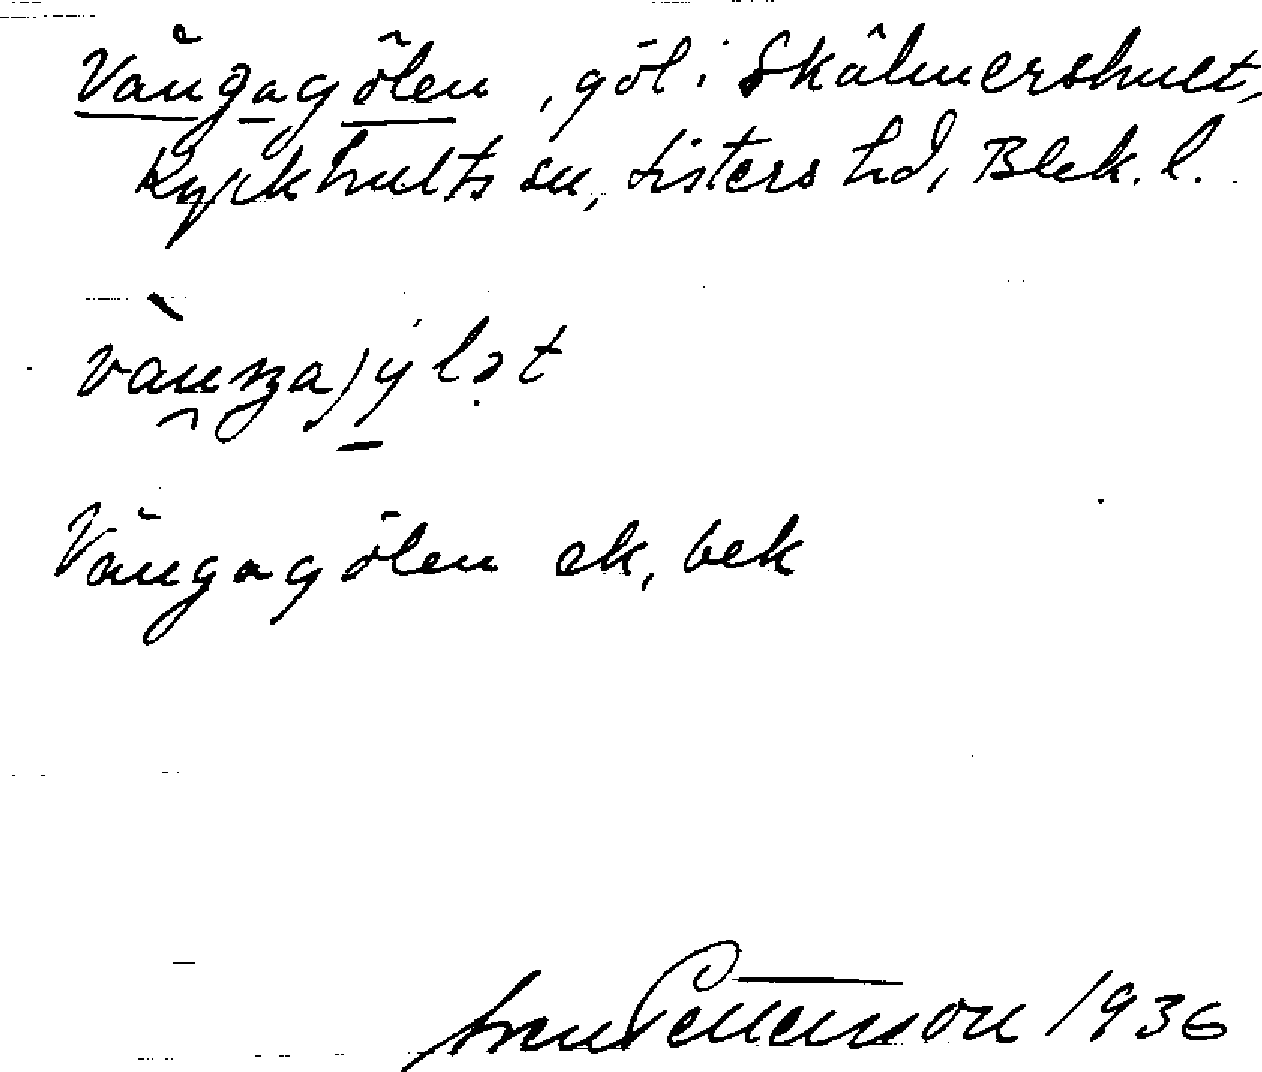 Vångagölen, göl i Skålmershult,
Kyrkhults sn, Listers hd, Blek. l.
Vångagölen ek, bek
Sven Pettersson 1936